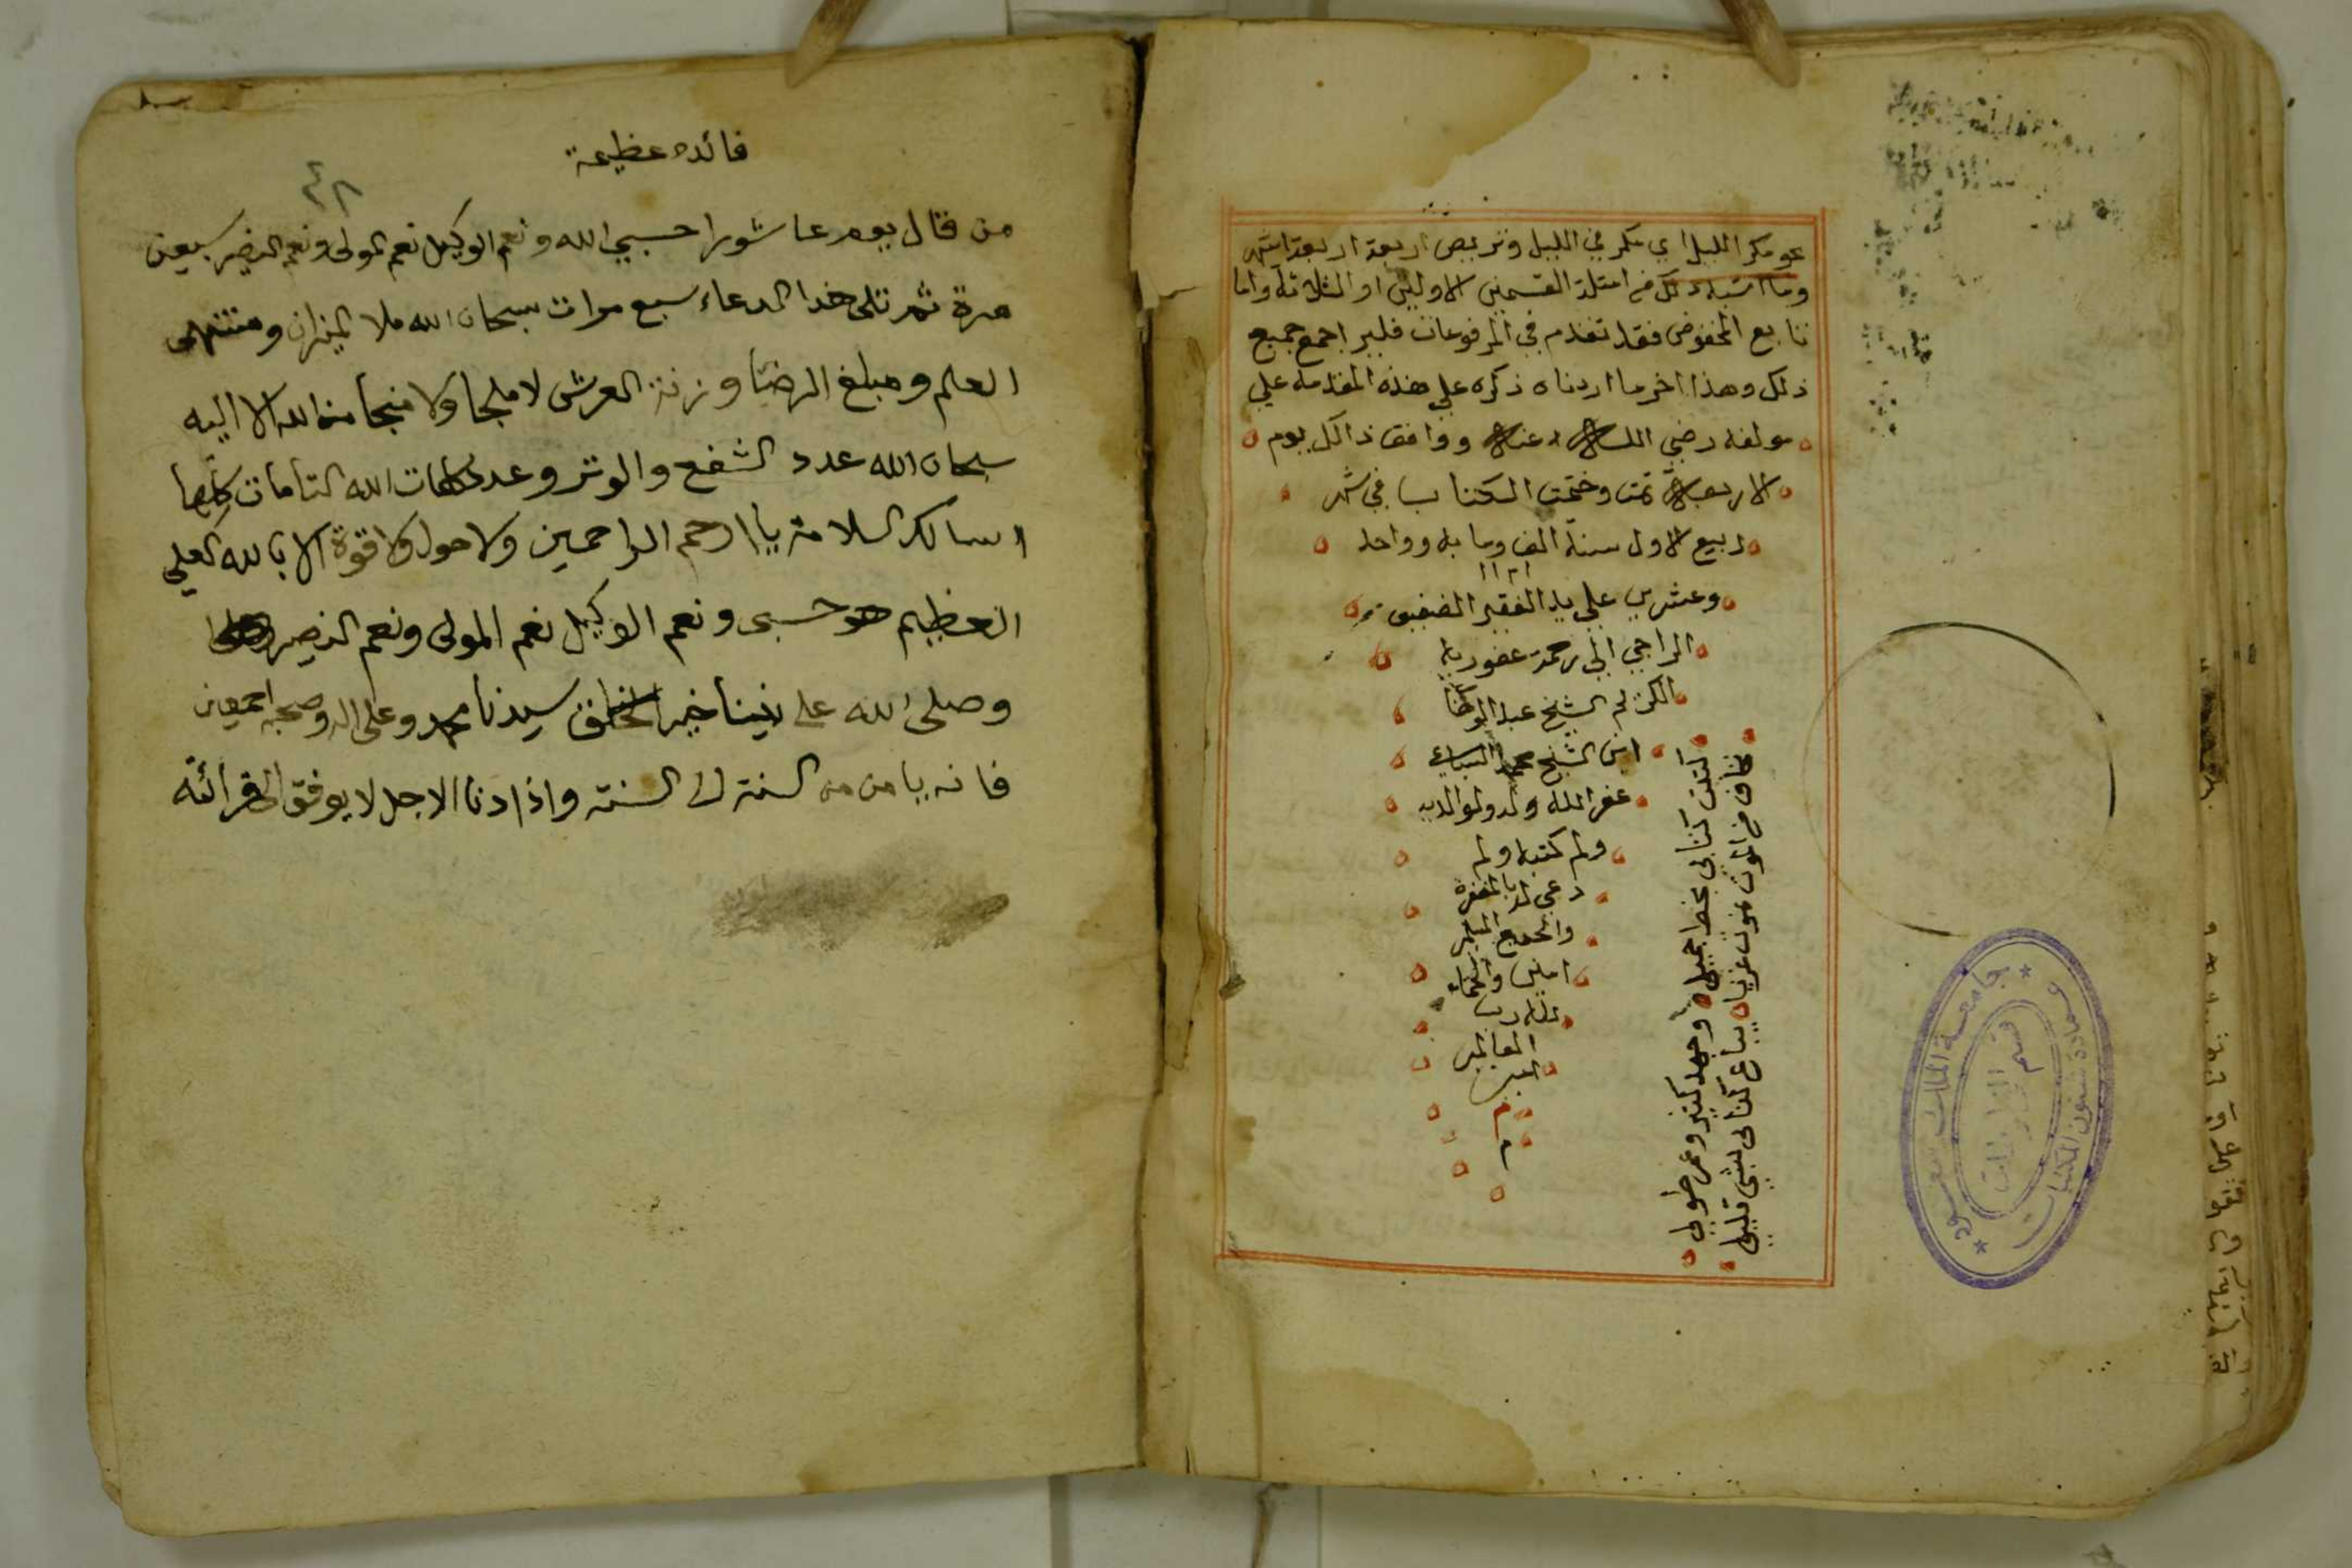 نحو مكر الليل اي مكر في الليل وتربص اربعة اربعة اشهر
وما اشبه ذلك من امثلة القسمين الاولين او الثلاثة واما
تابع المخفوض فقد تقدم في المرفوعات فليراجع جميع
ذلك وهذا اخر ما اردناه ذكره علي هذه المقدمة علي
مولفه رضي الله عنه ووافق ذالك يوم
الاربعة تمت وختمت الكتاب في شهر
ربيع الاول سنة الف ومايه وواحد
١١٢١
وعشرين علي يد الفقير الضعيف
الراجي الي رحمة عفو ربه
الكريم الشيخ عبد
ابن الشيخ محمد
غفر الله له ولوالديه
ولم كتبه ولم
دعي له بالمغفرة
والجميع المسلمين
امين والحمد
لله رب
العالمين
امين
م
م
كتبت كتابي بخط جميل وجهد كثير وعمر طويل
نخاف من الموت نموت غربا يباع كتابي بشي قليل
جامعة الملك سعود
عمادة شئون المكتبات
قسم المخطوطات
فائده عظيمة
٤٨
من قال يوم عاشورا حسبي الله ونعم الوكيل نعم المولى ونعم النصير سبعين
مرة ثم تلى هذا الدعاء سبع مرات سبحان الله ملا الميزان ومنتهى
العلم ومبلغ الرضا وزنة العرش لا ملجا ولا منجا من الله الا اليه
سبحان الله عدد الشفع والوتر وعدد كلمات الله التامات كلها
اسالك السلامة يا ارحم الراحمين ولا حول ولا قوة الا بالله العلي
العظيم هو حسبى ونعم الوكيل نعم المولى ونعم النصير
وصلى الله على نبينا خير الخلق سيدنا محمد وعلى اله وصحبه اجمعين
فانه يامن من السنة الى السنة واذا دنا الاجل لا يوفق الى قرائته